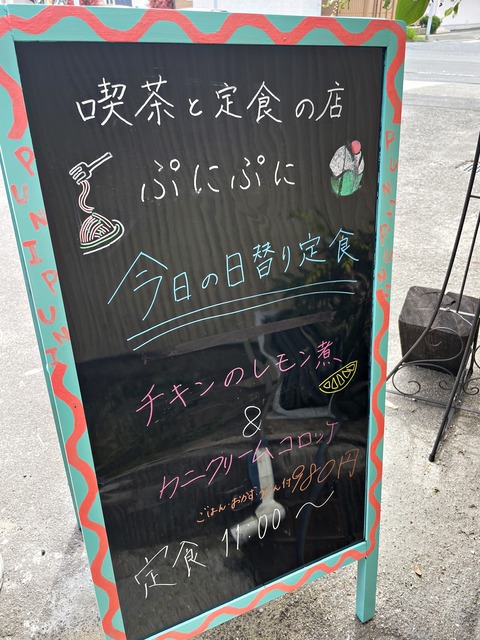 喫茶と定食の店
ぷにぷに
今日の日替り定食
チキンのレモン煮
&
カニクリームコロッケ
ごはん・おかず 付980円
定食 11:00〜
PUNIPUNI
PUNIPUNI